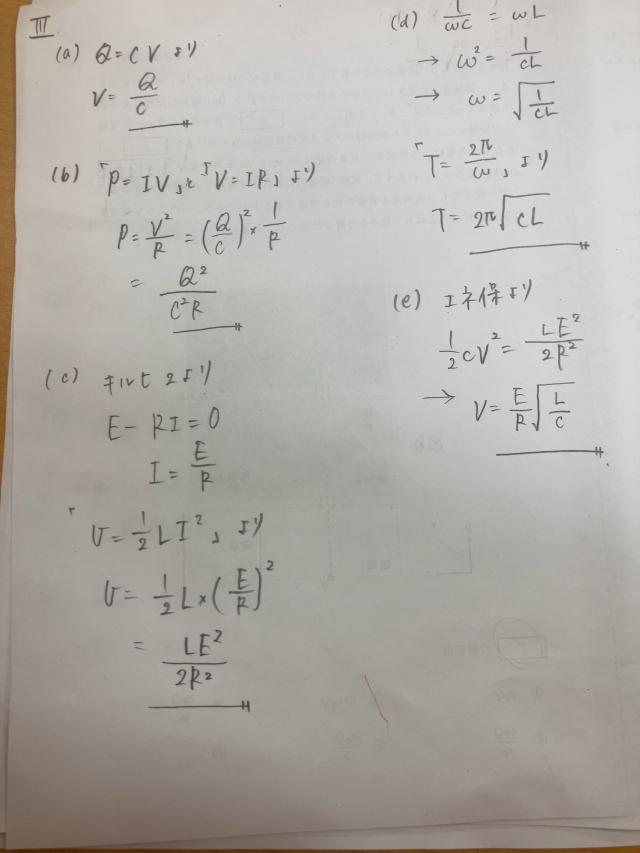 III
(a) Q=CV より
V= Q/C
(b) 「P=IV」と「V=IR」より
P= V²/R = (Q/C)² × 1/R
= Q²/C²R
(c) キルヒ2より
E- RI=0
I= E/R
「U= 1/2 LI²」より
U= 1/2 L×(E/R)²
= LE²/2R²
(d) 1/ωC = ωL
→ ω² = 1/CL
→ ω= √(1/CL)
「T= 2π/ω」より
T= 2π√CL
(e) エネ保より
1/2 CV² = LE²/2R²
→ V= E/R √(L/C)